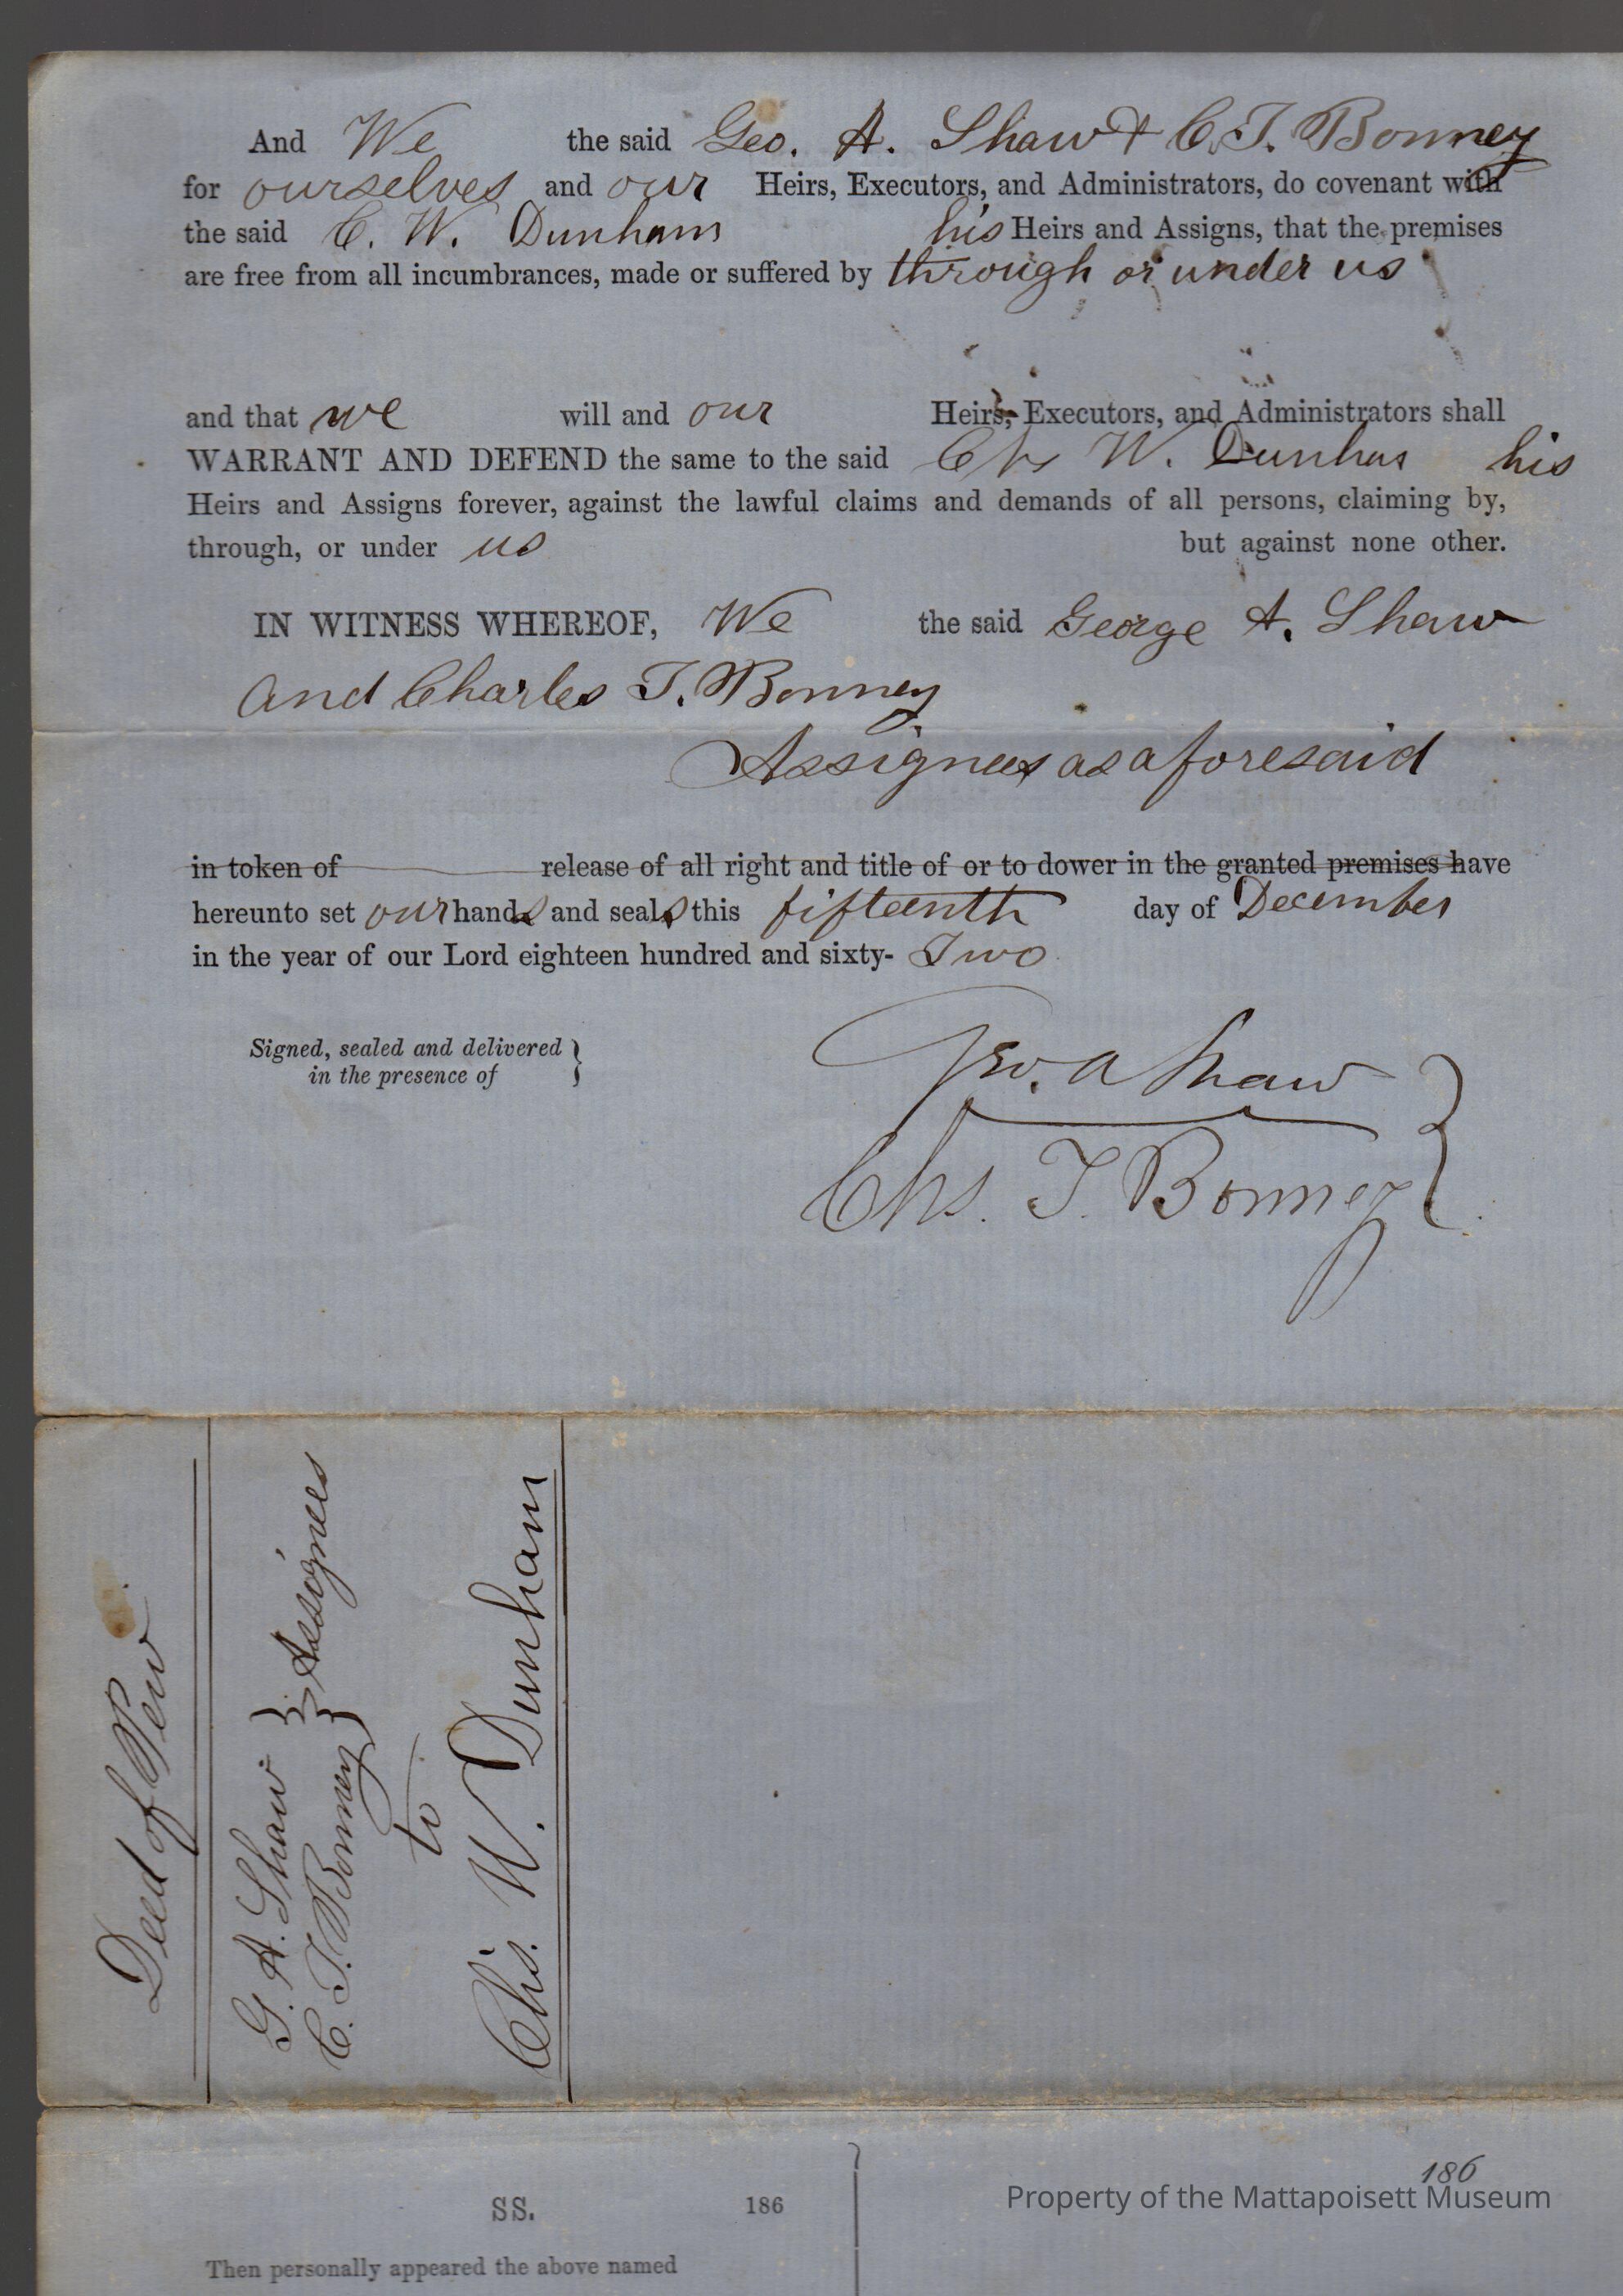 And We the said Geo. A. Shaw & C. T. Bonney
for ourselves and our Heirs, Executors, and Administrators, do covenant with
the said C. W. Dunham his Heirs and Assigns, that the premises
are free from all incumbrances, made or suffered by through or under us
and that we will and our Heirs, Executors, and Administrators shall
WARRANT AND DEFEND the same to the said Chs W. Dunham his
Heirs and Assigns forever, against the lawful claims and demands of all persons, claiming by,
through, or under us but against none other.
IN WITNESS WHEREOF, We the said George A. Shaw
and Charles T. Bonney
Assignees as aforesaid
in token of release of all right and title of or to dower in the granted premises have
hereunto set our hands and seals this fifteenth day of December
in the year of our Lord eighteen hundred and sixty- Two
Signed, sealed and delivered }
in the presence of
Geo. A Shaw
Chs. T. Bonney }
Deed of Pew
G. A. Shaw }
C. T. Bonney } Assignees
to
Chs. W. Dunham
SS. 186
186
Property of the Mattapoisett Museum
Then personally appeared the above named